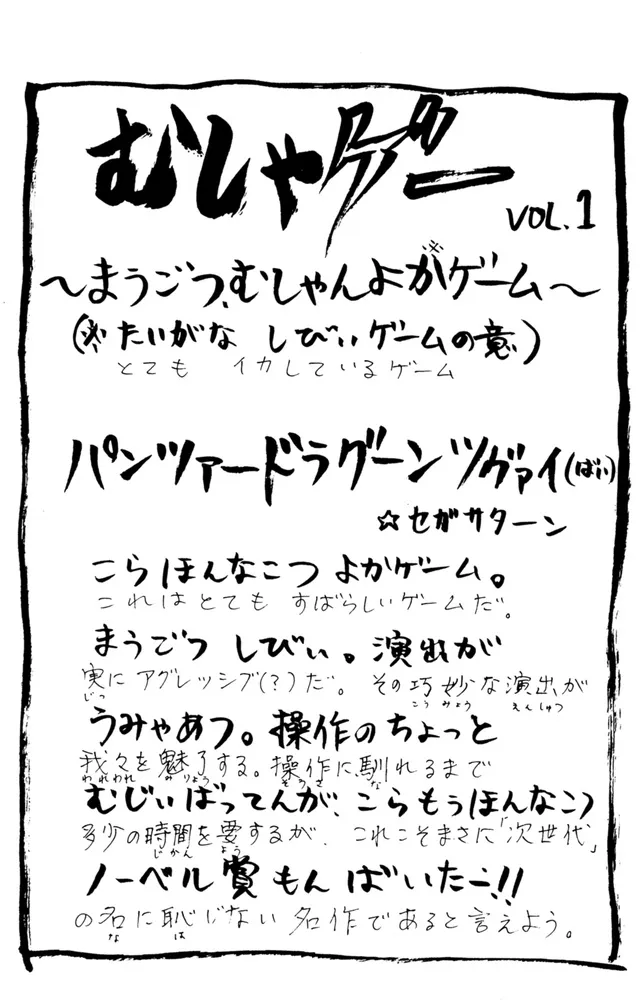 むしゃゲー
VOL.1
～まうごつ、むしゃんよかゲーム～
※
(※たいがな しびぃゲームの意)
とても イカしているゲーム
パンツァードラグーンツヴァイ(ばい)
☆セガサターン
こらほんなこつ よかゲーム。
これはとても すばらしいゲームだ。
まうごつ しびぃ。演出が
実に アグレッシブ(?)だ。その巧妙な演出が
じつ こうみょう えんしゅつ
うみゃあつ。操作のちょっと
我々を魅了する。操作に馴れるまで
われわれ みりょう そうさ な
むじぃばってんが、こらもうほんなこつ
多少の時間を要するが、これこそまさに「次世代」
じかん よう
ノーベル賞もんばいたー!!
の名に恥じない 名作であると言えよう。
な は